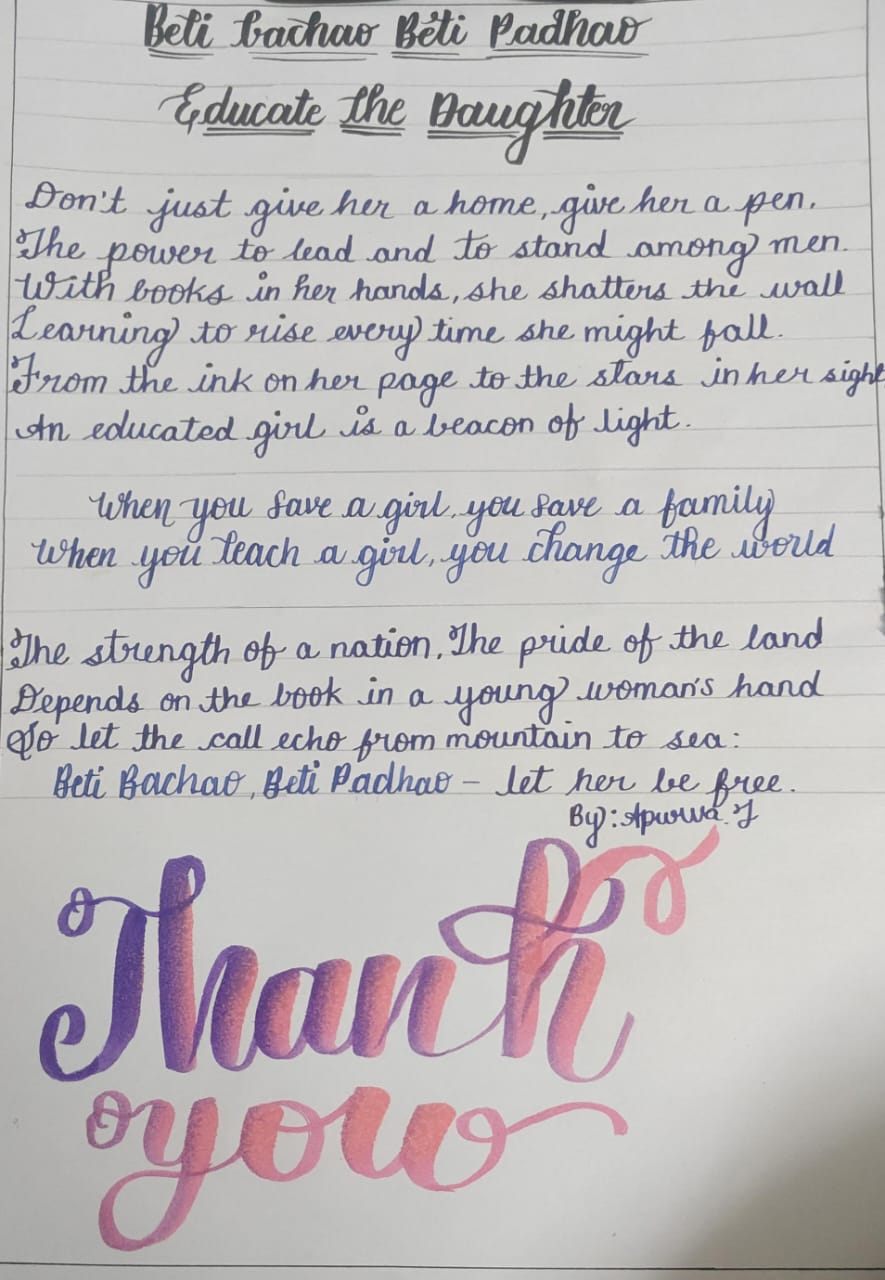 Beti Bachao Beti Padhao
Educate the Daughter
Don't just give her a home, give her a pen.
The power to lead and to stand among men.
With books in her hands, she shatters the wall
Learning to rise every time she might fall.
From the ink on her page to the stars in her sight
An educated girl is a beacon of light.
When you save a girl, you save a family
When you teach a girl, you change the world
The strength of a nation, The pride of the land
Depends on the book in a young woman's hand
So let the call echo from mountain to sea:
Beti Bachao, Beti Padhao – let her be free.
By: Apurwa. J
Thank
you